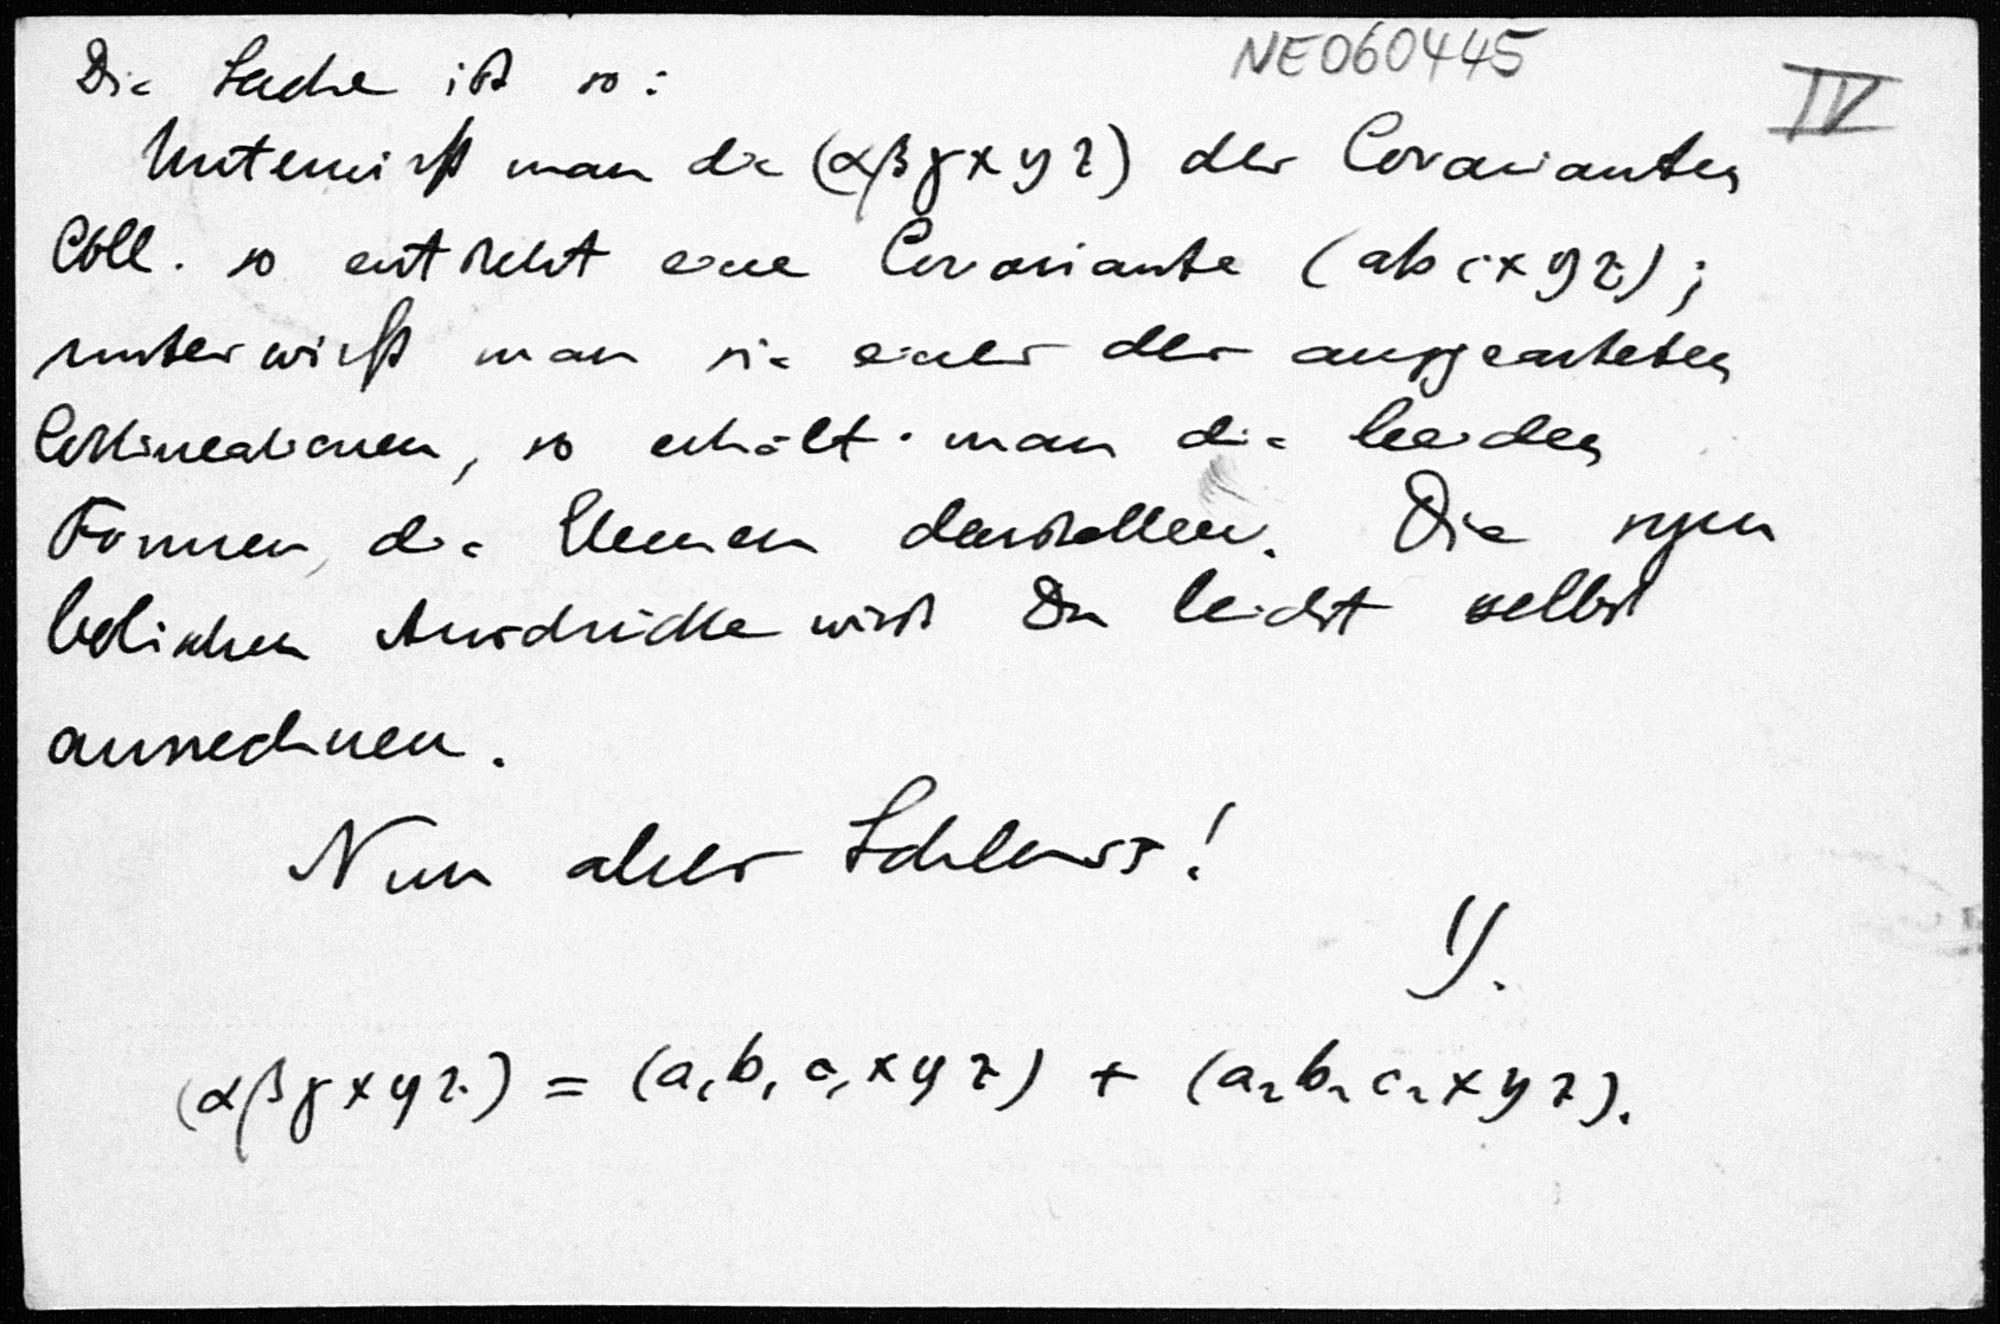 NE060445
IV
Die Sache ist so:
Unterwirft man die (αβγxyz) der Covarianten
Coll. so entsteht eine Covariante (abcxyz);
unterwirft man sie einer der ausgearteten
Collineationen, so erhält man die beiden
Formen, die darstellen. Die sym
bolischen Ausdrücke wirst Du leicht selbst
ausrechnen.
Nun aber Schluss!
(αβγxyz) = (a₁b₁c₁xyz) + (a₂b₂c₂xyz).